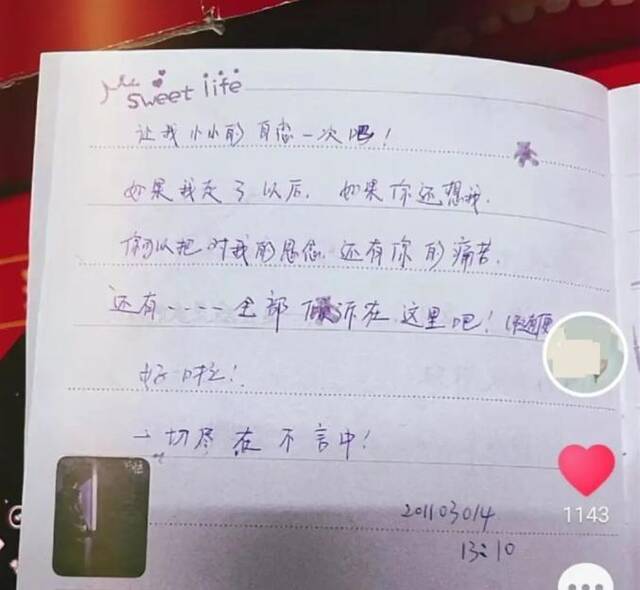 Sweet life
让我小小的自恋一次吧！
如果我走了以后，如果你还想我，
你可以把对我的思念，还有你的痛苦，
还有----全部倾诉在这里吧！
好啦！
一切尽在不言中！
201103014
13:10
1143